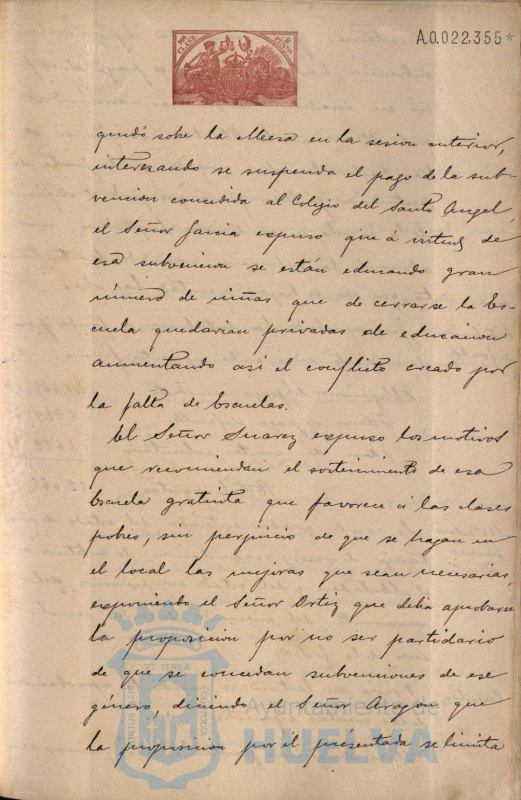 A.0.022.355*
quedó sobre la Mesa en la sesion anterior,
interesando se suspenda el pago de la sub-
vencion concedida al Colegio del Santo Angel,
el Señor Garcia expuso que á virtud de
esa subvencion se están educando gran
número de niñas que de cerrarse la Es-
cuela quedarian privadas de educacion
aumentando asi el conflicto creado por
la falta de Escuelas.
El Señor Suarez expuso los motivos
que recomiendan el sostenimiento de esa
Escuela gratuita que favorece á las clases
pobres, sin perjuicio de que se hagan en
el local las mejoras que sean necesarias,
exponiendo el Señor Ortiz que debia aprobarse
la proposicion por no ser partidario
de que se concedan subvenciones de ese
género, diciendo el Señor Aragon que
la proposicion por él presentada se limita
Ayuntamiento de
HUELVA